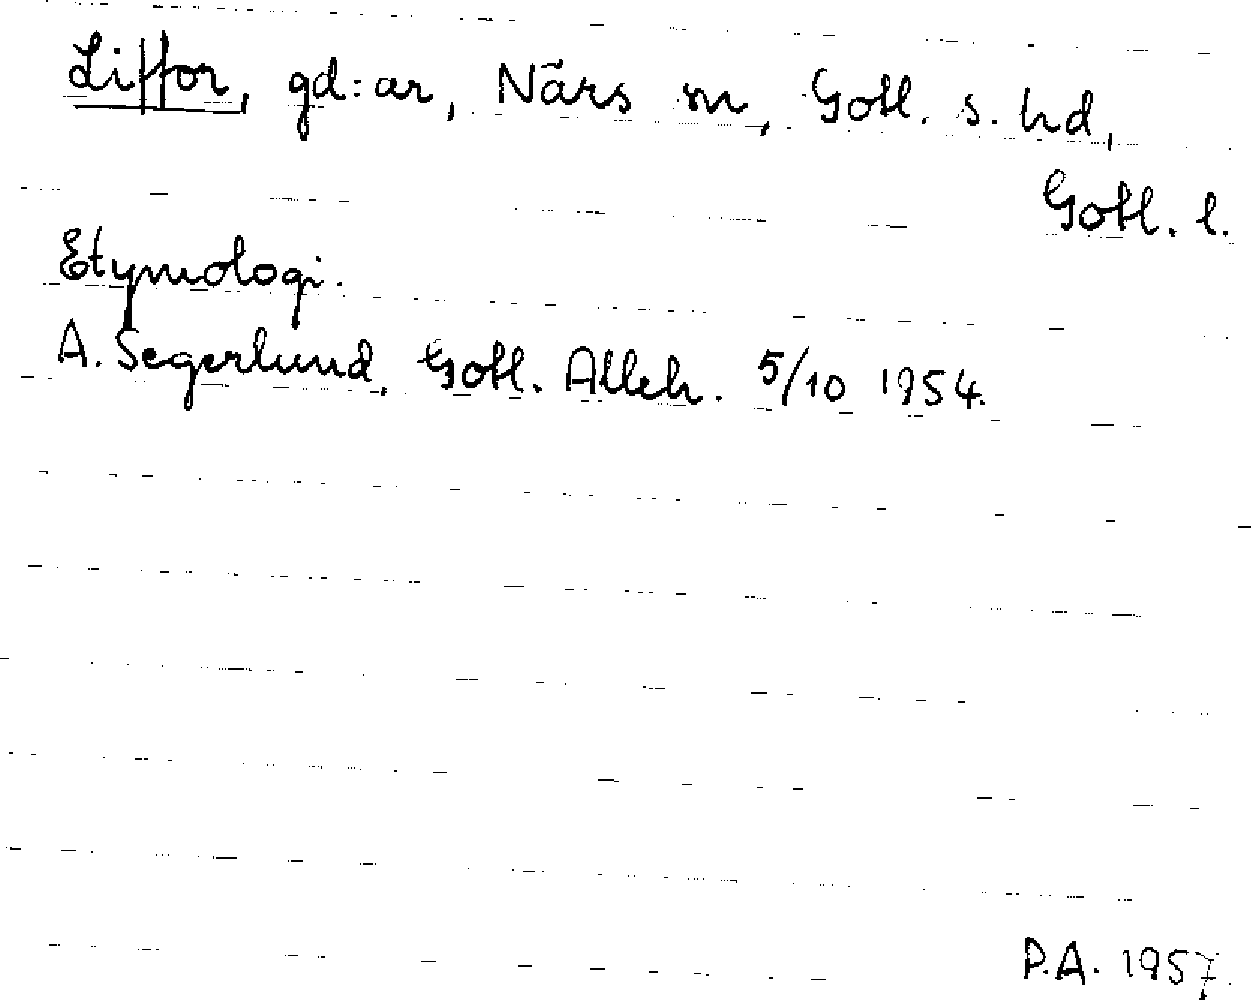 Liffor, gd:ar, Närs sn, Gotl. s. hd,
Gotl. l.
Etymologi.
A. Segerlund, Gotl. Alleh. 5/10 1954.
P.A. 1957.